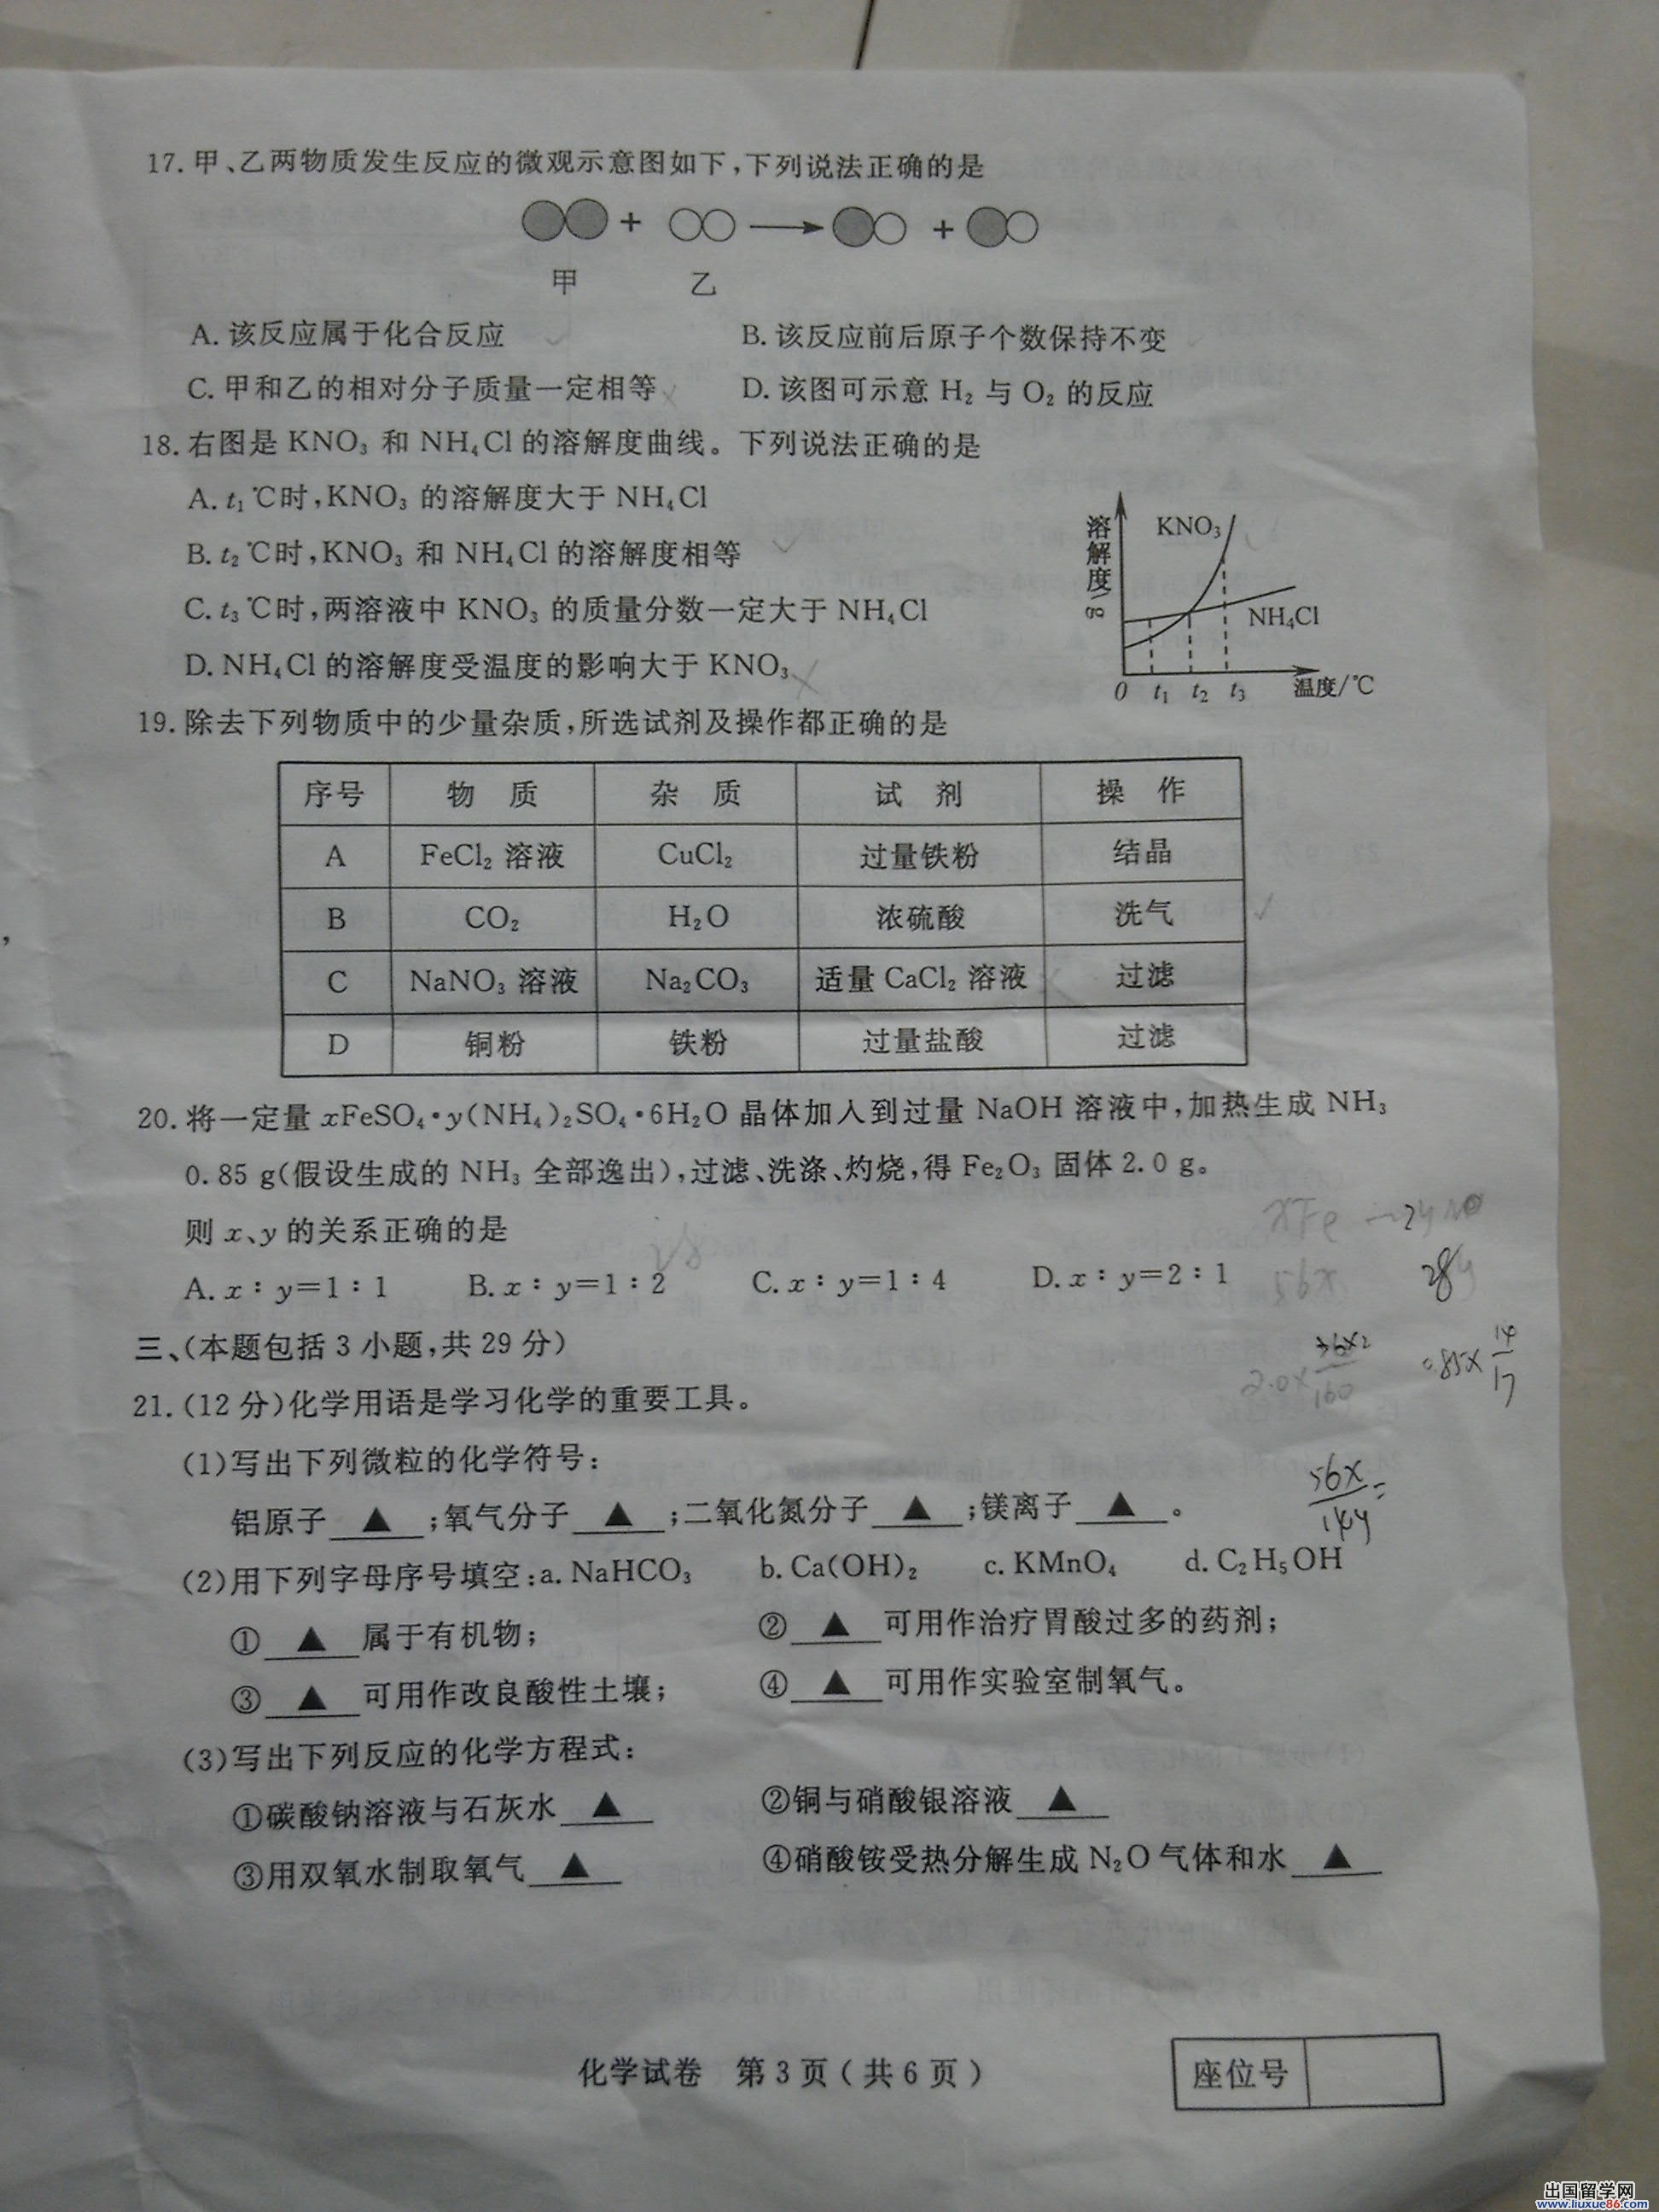 17. 甲、乙两物质发生反应的微观示意图如下,下列说法正确的是
+ ⟶ +
甲 乙
A. 该反应属于化合反应 B. 该反应前后原子个数保持不变
C. 甲和乙的相对分子质量一定相等 D. 该图可示意 H₂ 与 O₂ 的反应
18. 右图是 KNO₃ 和 NH₄Cl 的溶解度曲线。下列说法正确的是
A. t₁℃时,KNO₃ 的溶解度大于 NH₄Cl
B. t₂℃时,KNO₃ 和 NH₄Cl 的溶解度相等
C. t₃℃时,两溶液中 KNO₃ 的质量分数一定大于 NH₄Cl
D. NH₄Cl 的溶解度受温度的影响大于 KNO₃
溶解度/g
KNO₃
NH₄Cl
0 t₁ t₂ t₃ 温度/℃
19. 除去下列物质中的少量杂质,所选试剂及操作都正确的是
序号 物 质 杂 质 试 剂 操 作
A FeCl₂ 溶液 CuCl₂ 过量铁粉 结晶
B CO₂ H₂O 浓硫酸 洗气
C NaNO₃ 溶液 Na₂CO₃ 适量 CaCl₂ 溶液 过滤
D 铜粉 铁粉 过量盐酸 过滤
20. 将一定量 xFeSO₄·y(NH₄)₂SO₄·6H₂O 晶体加入到过量 NaOH 溶液中,加热生成 NH₃
0.85 g(假设生成的 NH₃ 全部逸出),过滤、洗涤、灼烧,得 Fe₂O₃ 固体 2.0 g。
则 x、y 的关系正确的是
A. x∶y=1∶1 B. x∶y=1∶2 C. x∶y=1∶4 D. x∶y=2∶1
56x 28y
2.0× 56×2/160 0.85× 14/17
三、(本题包括 3 小题,共 29 分)
21. (12 分)化学用语是学习化学的重要工具。
(1)写出下列微粒的化学符号:
铝原子 ▲ ;氧气分子 ▲ ;二氧化氮分子 ▲ ;镁离子 ▲ 。
(2)用下列字母序号填空:a. NaHCO₃ b. Ca(OH)₂ c. KMnO₄ d. C₂H₅OH
① ▲ 属于有机物; ② ▲ 可用作治疗胃酸过多的药剂;
③ ▲ 可用作改良酸性土壤; ④ ▲ 可用作实验室制氧气。
(3)写出下列反应的化学方程式:
①碳酸钠溶液与石灰水 ▲ ②铜与硝酸银溶液 ▲
③用双氧水制取氧气 ▲ ④硝酸铵受热分解生成 N₂O 气体和水 ▲
化学试卷 第 3 页 ( 共 6 页 )
座位号
出国留学网
www.liuxue86.com